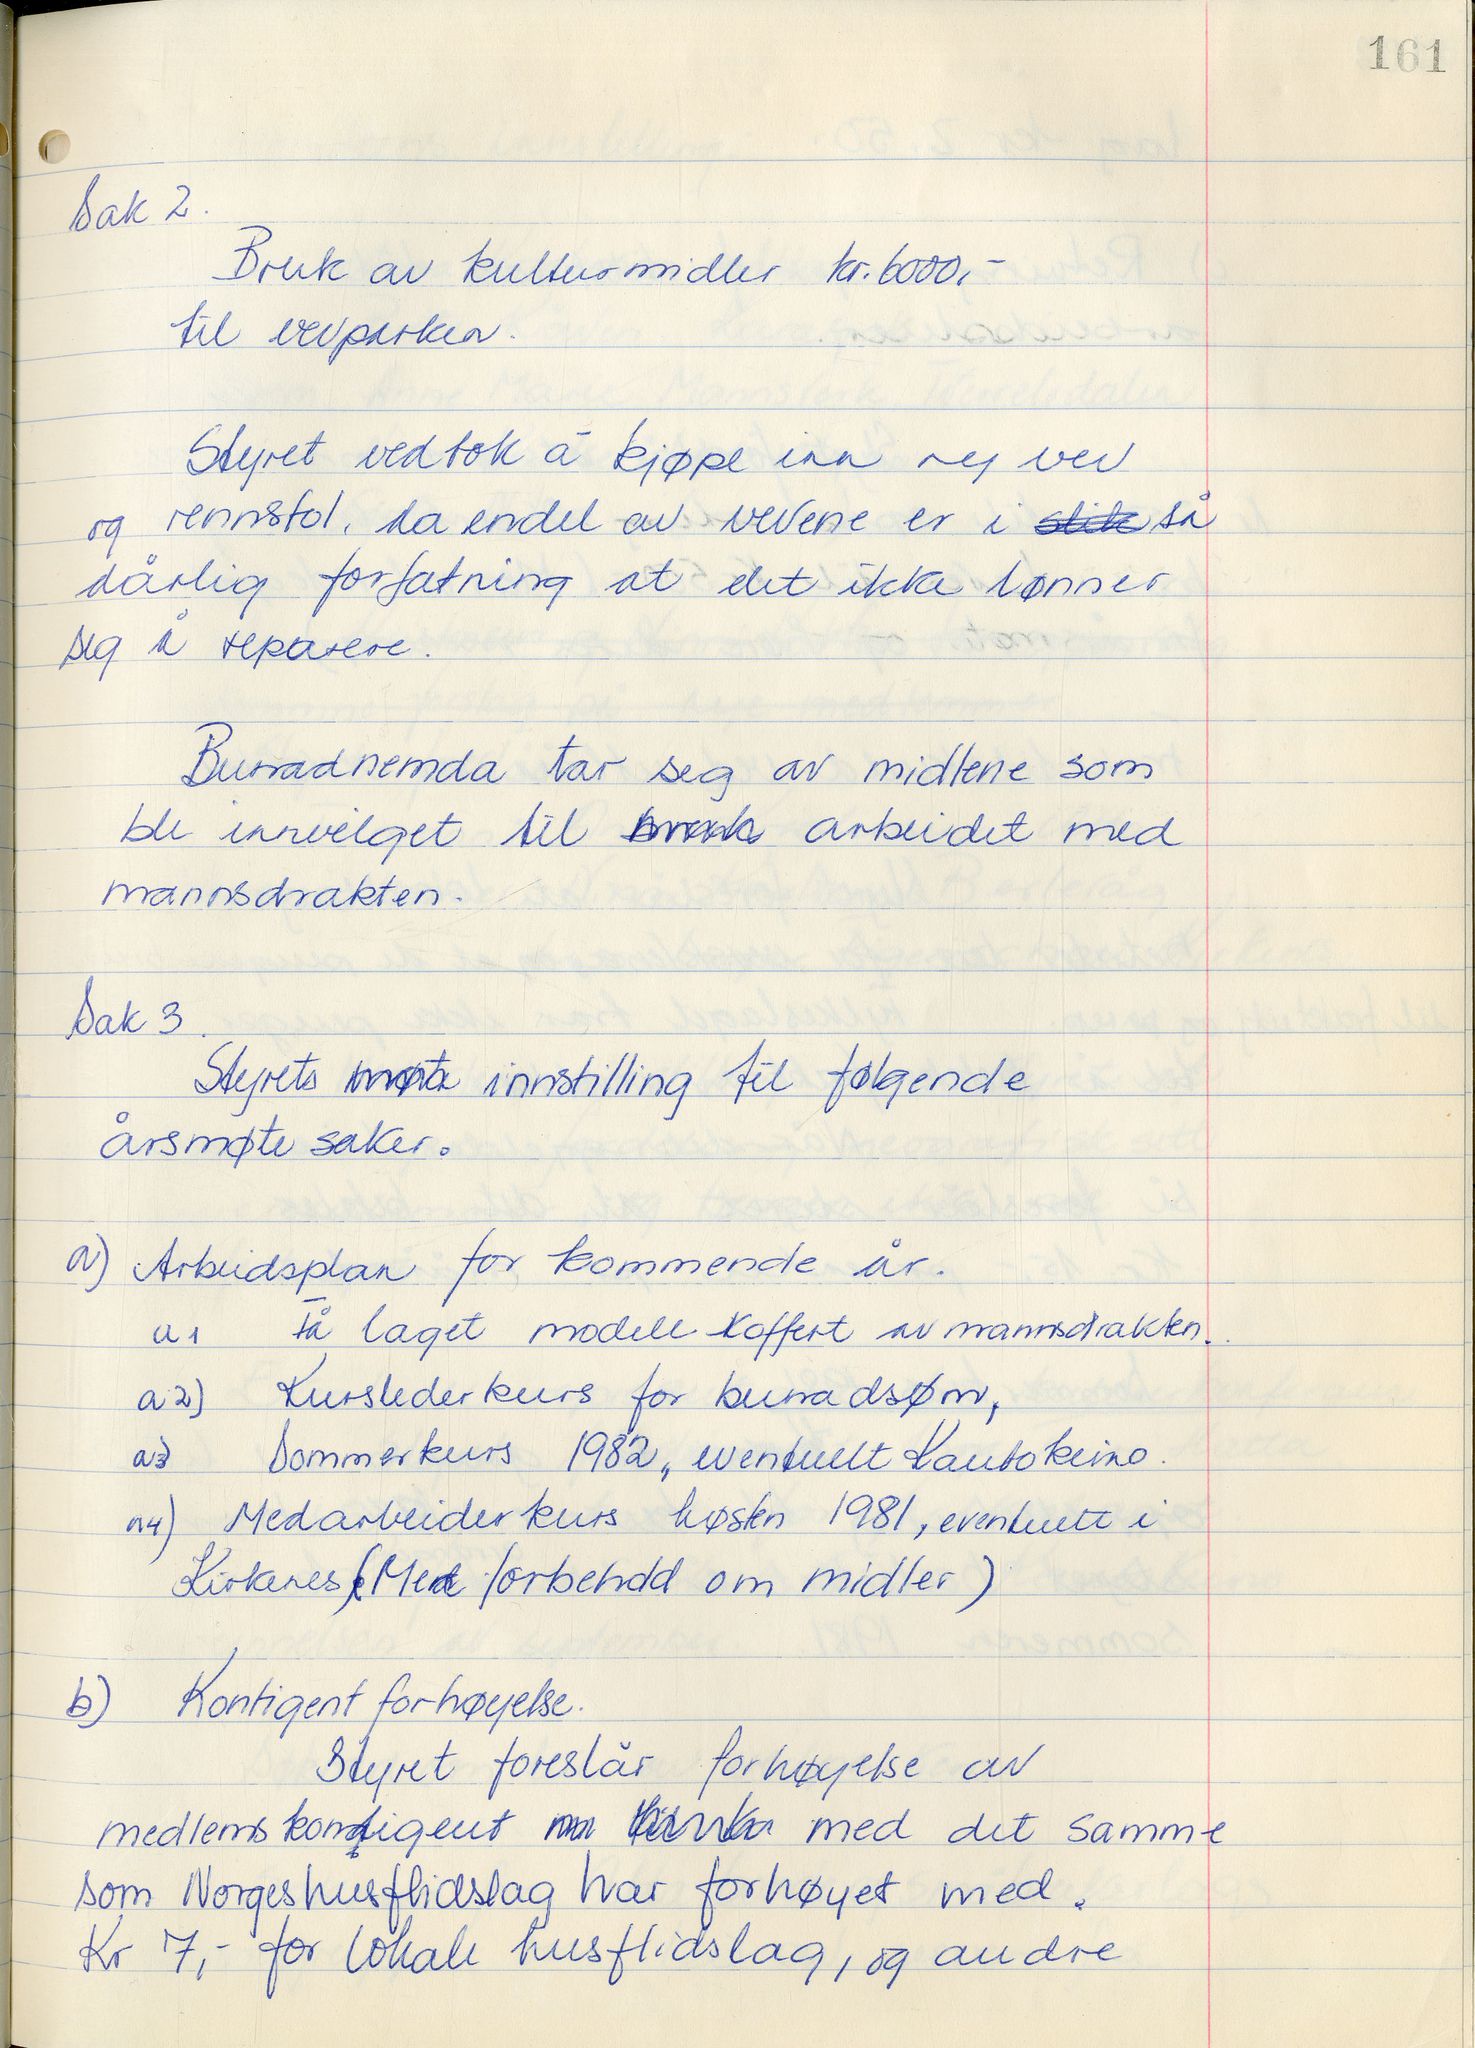 161
Sak 2.
Bruk av kulturmidler kr. 6000,-
til vevparken.
Styret vedtok å kjøpe inn ny vev
og rennstol, da endel av vevene er i slik så
dårlig forfatning at det ikke lønner
seg å reparere.
Bunadnemda tar seg av midlene som
ble innvilget til arbeidet med
mannsdrakten.
Sak 3.
Styrets innstilling til følgende
årsmøte saker.
a) Arbeidsplan for kommende år.
a1 Få laget modell koffert av mannsdrakten.
a2) Kurslederkurs for bunadsøm,
a3 Sommerkurs 1982, eventuelt Kautokeino.
a4) Medarbeiderkurs høsten 1981, eventuelt i
Kirkenes, (Med forbehold om midler)
b) Kontigent forhøyelse.
Styret foreslår forhøyelse av
medlemskontigent med det samme
som Norges husflidslag har forhøyet med.
Kr 7,- for lokale husflidslag, og andre